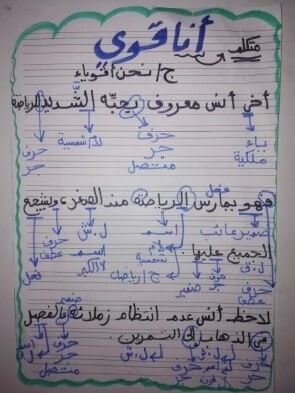 متكلم أنا قوي
ج/ نحن أقوياء
أخي أنس معروف بحبّه الشّديد للرياضة
ياء ملكية
حرف جر متصل
لا شمسية
حرف جر
فهو يمارس الرياضة منذ الصغر، ويشجع
فعل
ضمير غائب
اسم
ل.ش
حرف عطف
فعل
الجميع عليها
ل.ق
حرف جر
ضمير
لام شمسية
ج/ رياضات
حرف عطف
لاحظ أنس عدم انتظام زملائه بالفصل
ضمير
في الذهاب إلى التمرين.
حرف جر
حرف جر
ل.ش
حرف جر متصل
اسم